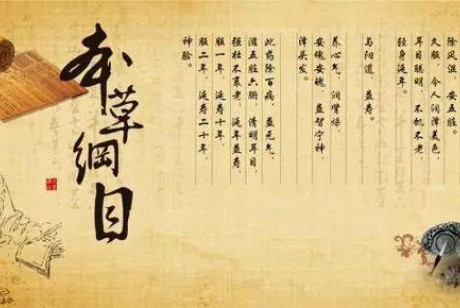 除风湿。安五脏。
久服,令人润泽美色。
耳目聪明,不饥不老
轻身延年。
与阳道,益寿。
养心气,润肾燥,
安魂安魄,益智宁神,
泽头发。
此药除百病,益元气,
滋五脏六腑,清明耳目,
强壮不衰老,延年益寿,
服一年,延寿十年,
服二年,延寿二十年,
神验。
本草綱目